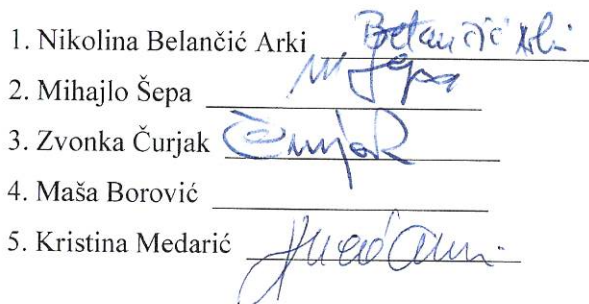 1. Nikolina Belančić Arki Belančić Arki
2. Mihajlo Šepa M Šepa
3. Zvonka Čurjak Čurjak
4. Maša Borović
5. Kristina Medarić